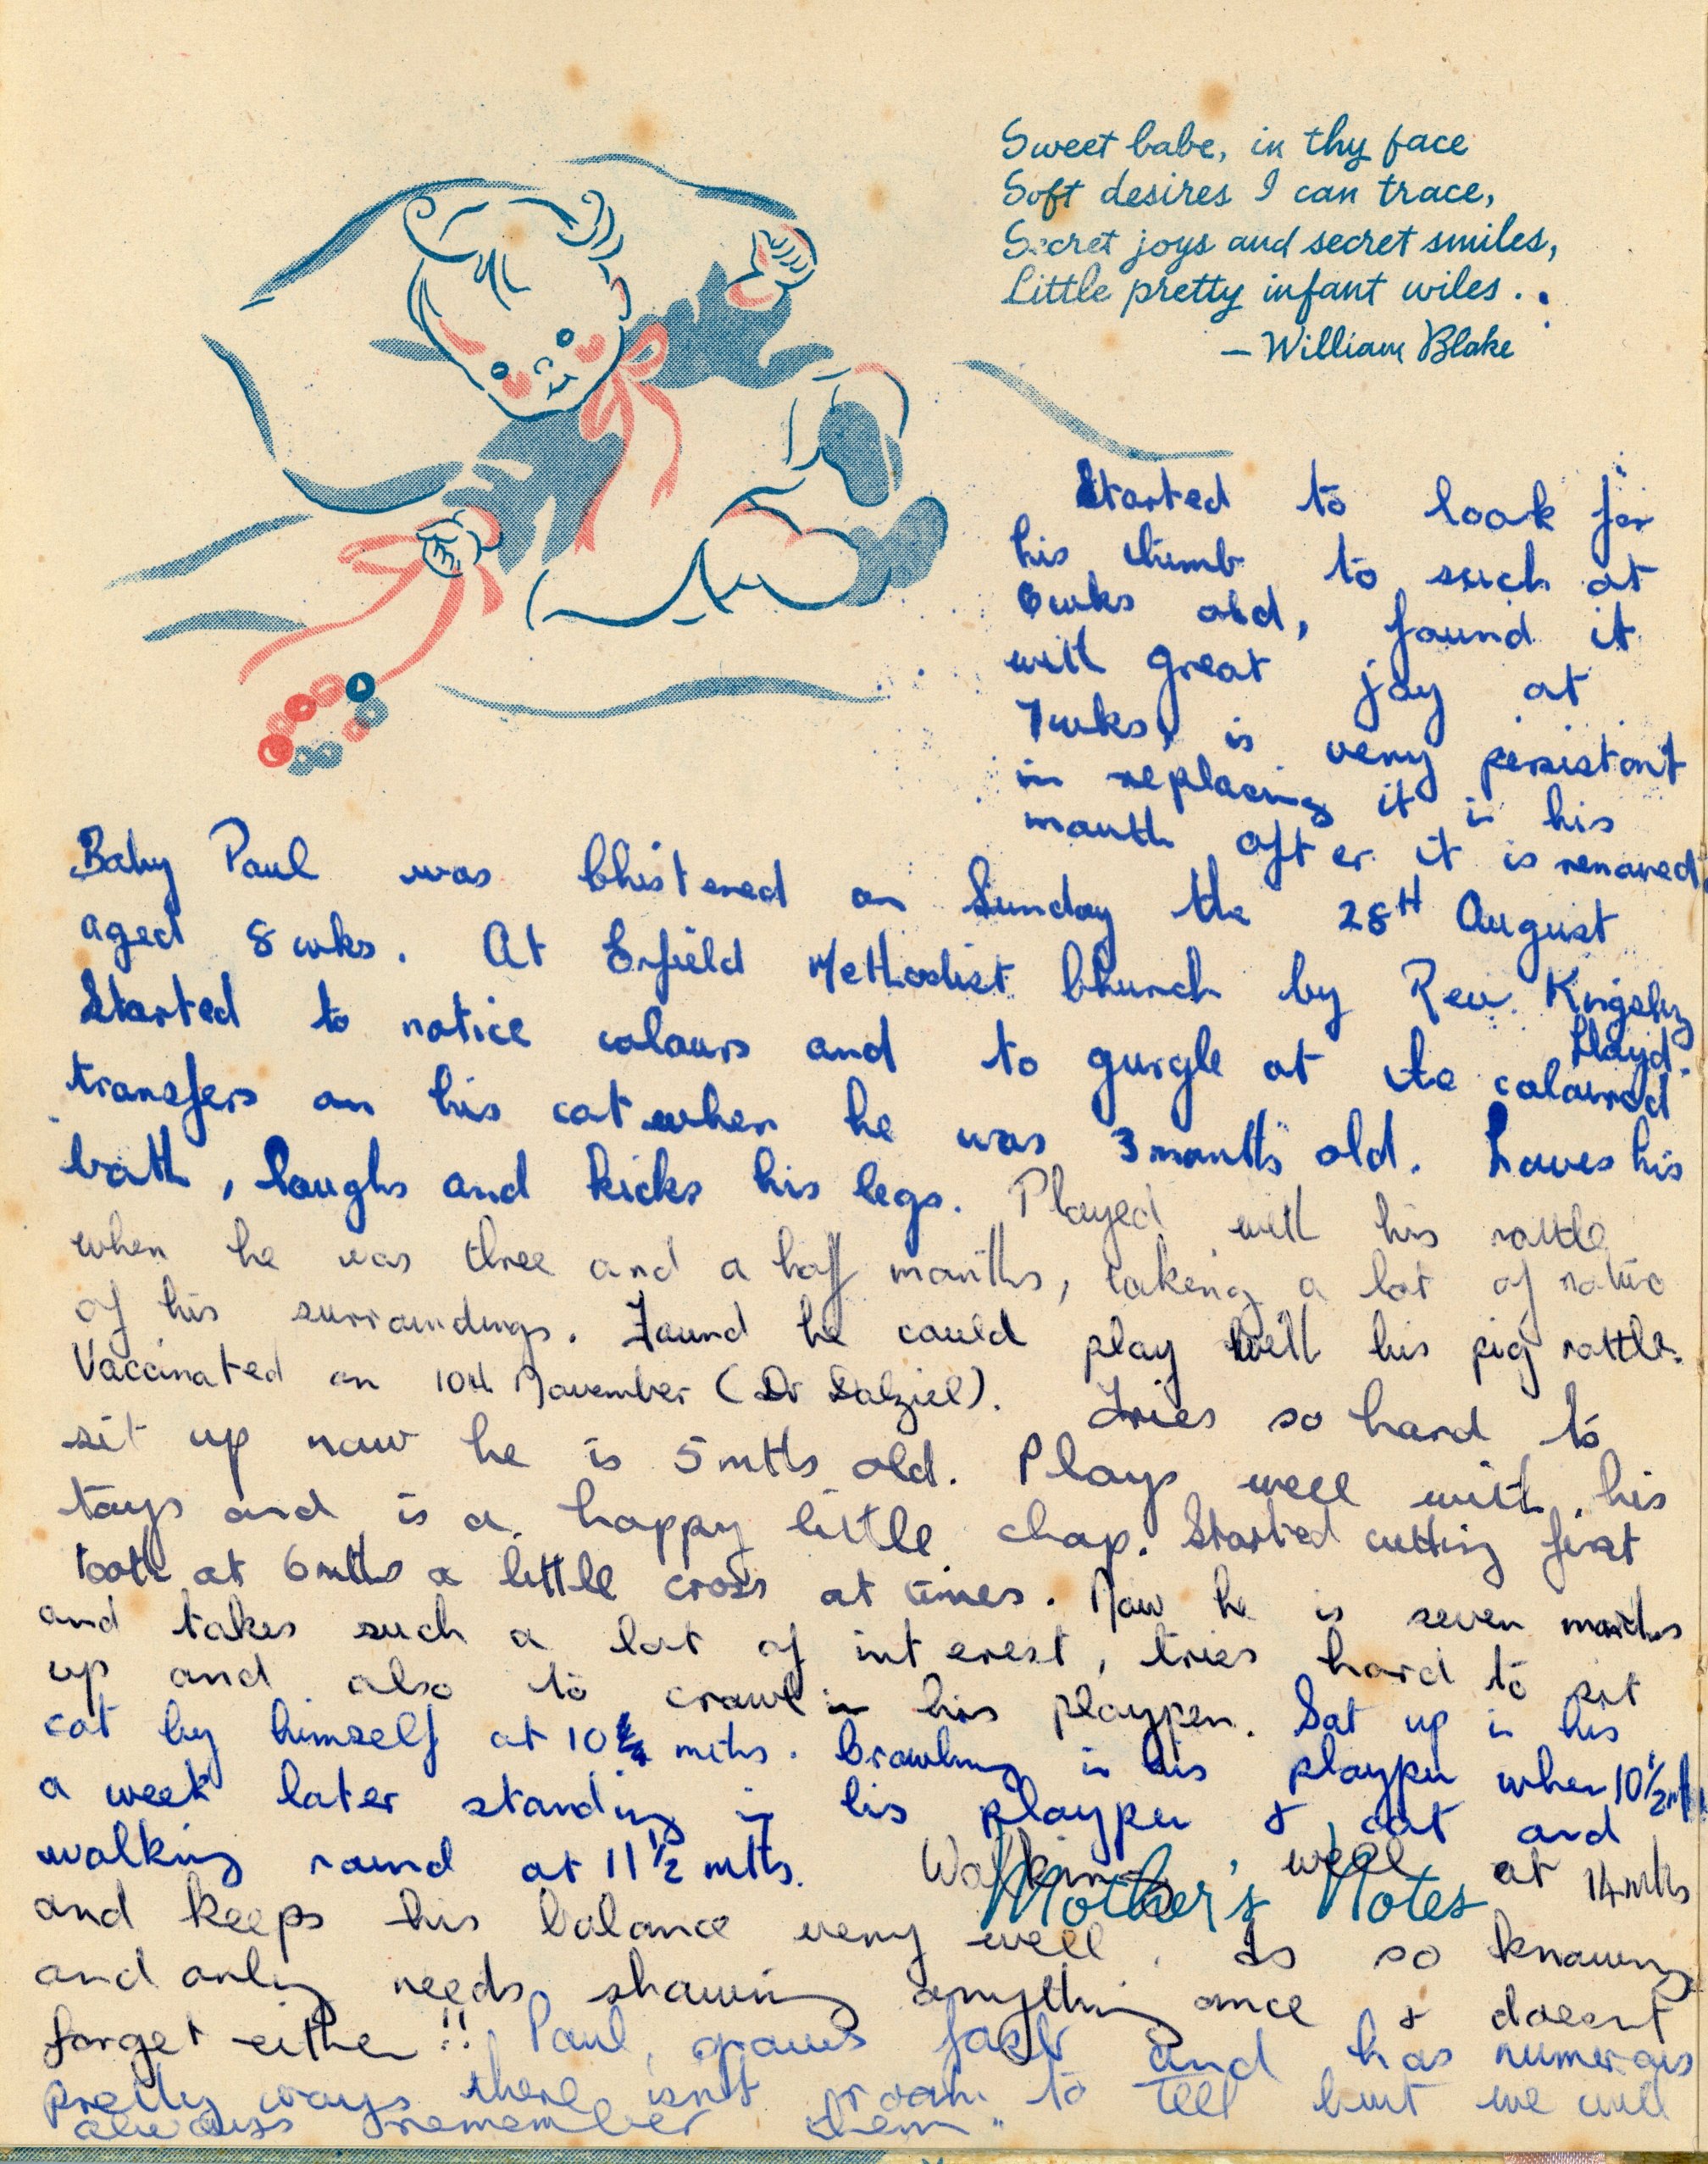 Sweet babe, in thy face
Soft desires I can trace,
Secret joys and secret smiles,
Little pretty infant wiles..
— William Blake
Started to look for
his thumb to suck at
6wks old, found it
with great joy at
7wks, is very persistant
in replacing it in his
mouth after it is removed.
Baby Paul was Christened on Sunday the 28th August
aged 8 wks. At Enfield Methodist Church by Rev. Kingsley
Lloyd.
Started to notice colours and to gurgle at the coloured
transfers on his cot when he was 3 months old. Loves his
bath, laughs and kicks his legs. Played with his rattle
when he was three and a half months, taking a lot of notice
of his surroundings. Found he could play with his pig rattle.
Vaccinated on 10th November (Dr Dalziel). Tries so hard to
sit up now he is 5 mths old. Plays well with his
toys and is a happy little chap. Started cutting first
tooth at 6 mths a little cross at times. Now he is seven months
and takes such a lot of interest, tries hard to sit
up and also to crawl in his playpen. Sat up in his
cot by himself at 10 mths. Crawling in his playpen when 10½ mths
a week later standing in his playpen & cot and
walking round at 11½ mths. Walking well at 14 mths
Mother's Notes
and keeps his balance very well. Is so knowing
and only needs showing anything once & doesnt
forget either!! Paul grows fast and has numerous
pretty ways there isn't room to tell but we will
always remember them"